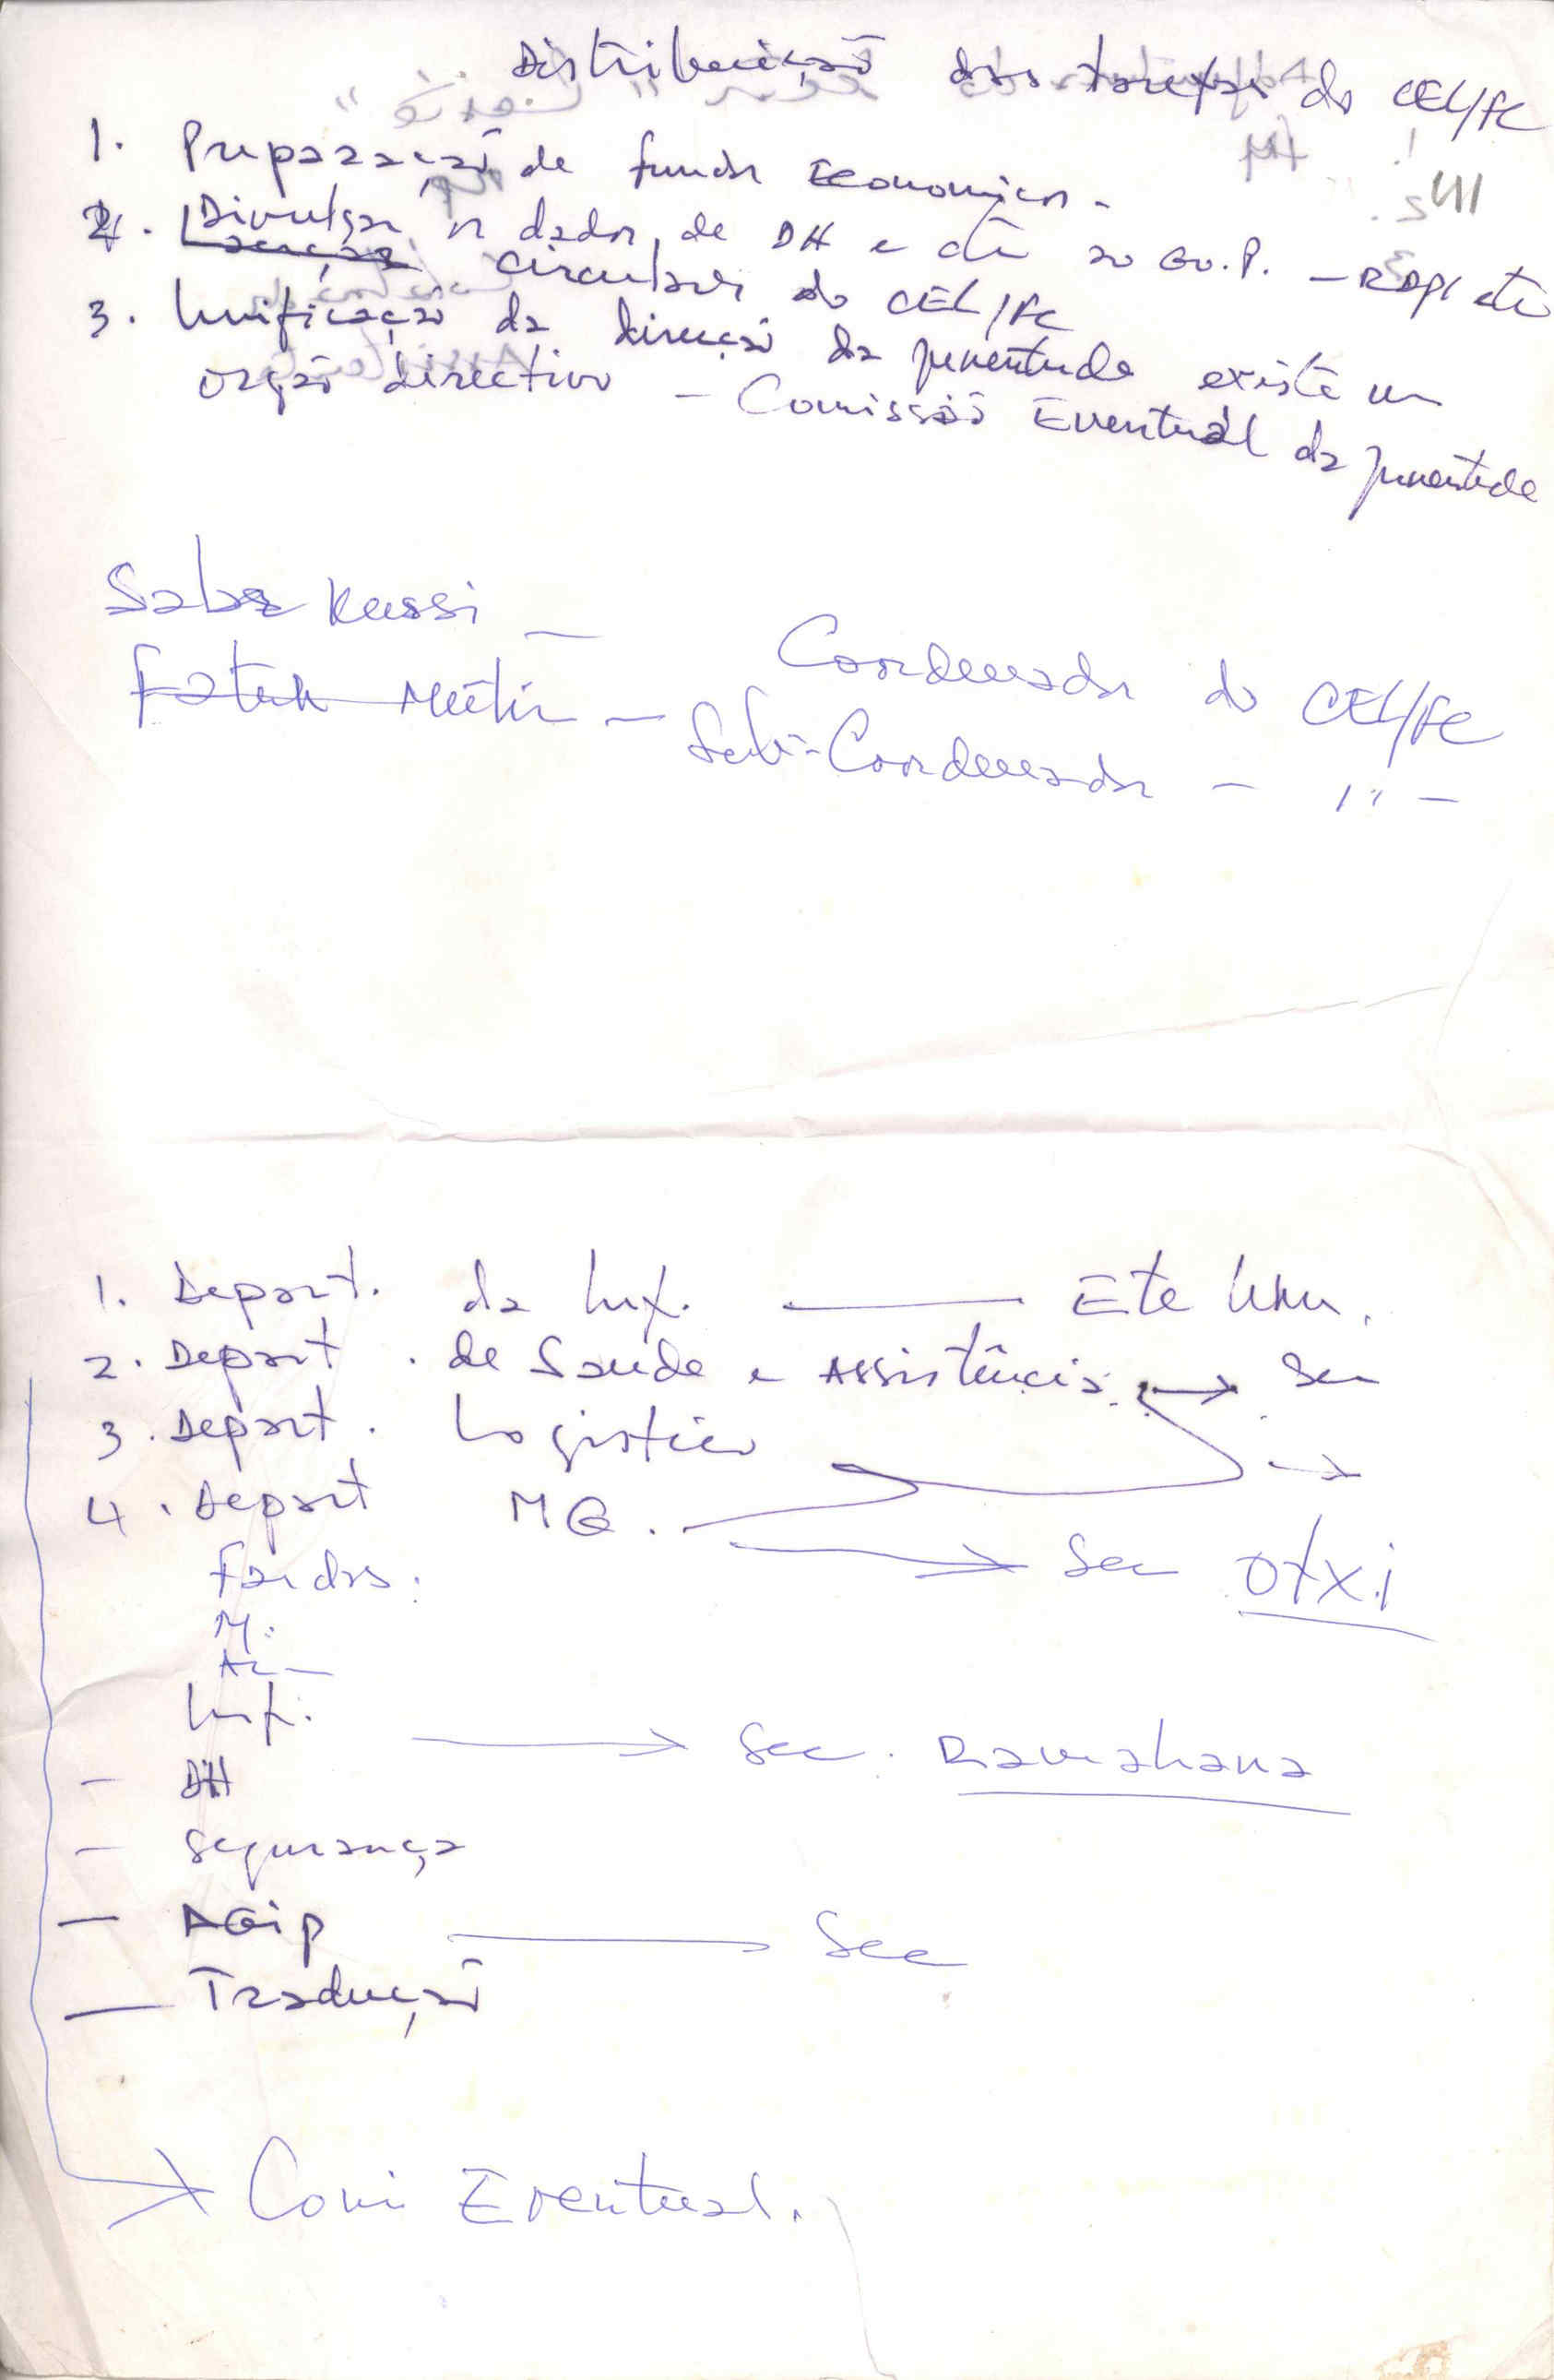 Distribuição das tarefas do CEL/FC
1. Preparação de fundos Economicos.
2. Divulgar os dados, de DH e etc ao Gov.P. - RDPL etc
circulares do CEL/FC
3. Unificação da direção da juventude existe um
orgão directivo - Comissão Eventual da juventude
Saba Kussi -
Coordenador do CEL/FC
Fatuk Mutin - Sub-Coordenador - " -
1. Depart. da Inf. — Ete Uku.
2. Depart. de Saude e Assistência. → Sec
3. Depart. Logistico →
4. Depart MQ. → Sec OTXi
Fardas:
M:
Inf. → Sec. Ramahana
- DH
- Segurança
- AGip — Sec
- Tradução
→ Comi Eventual.